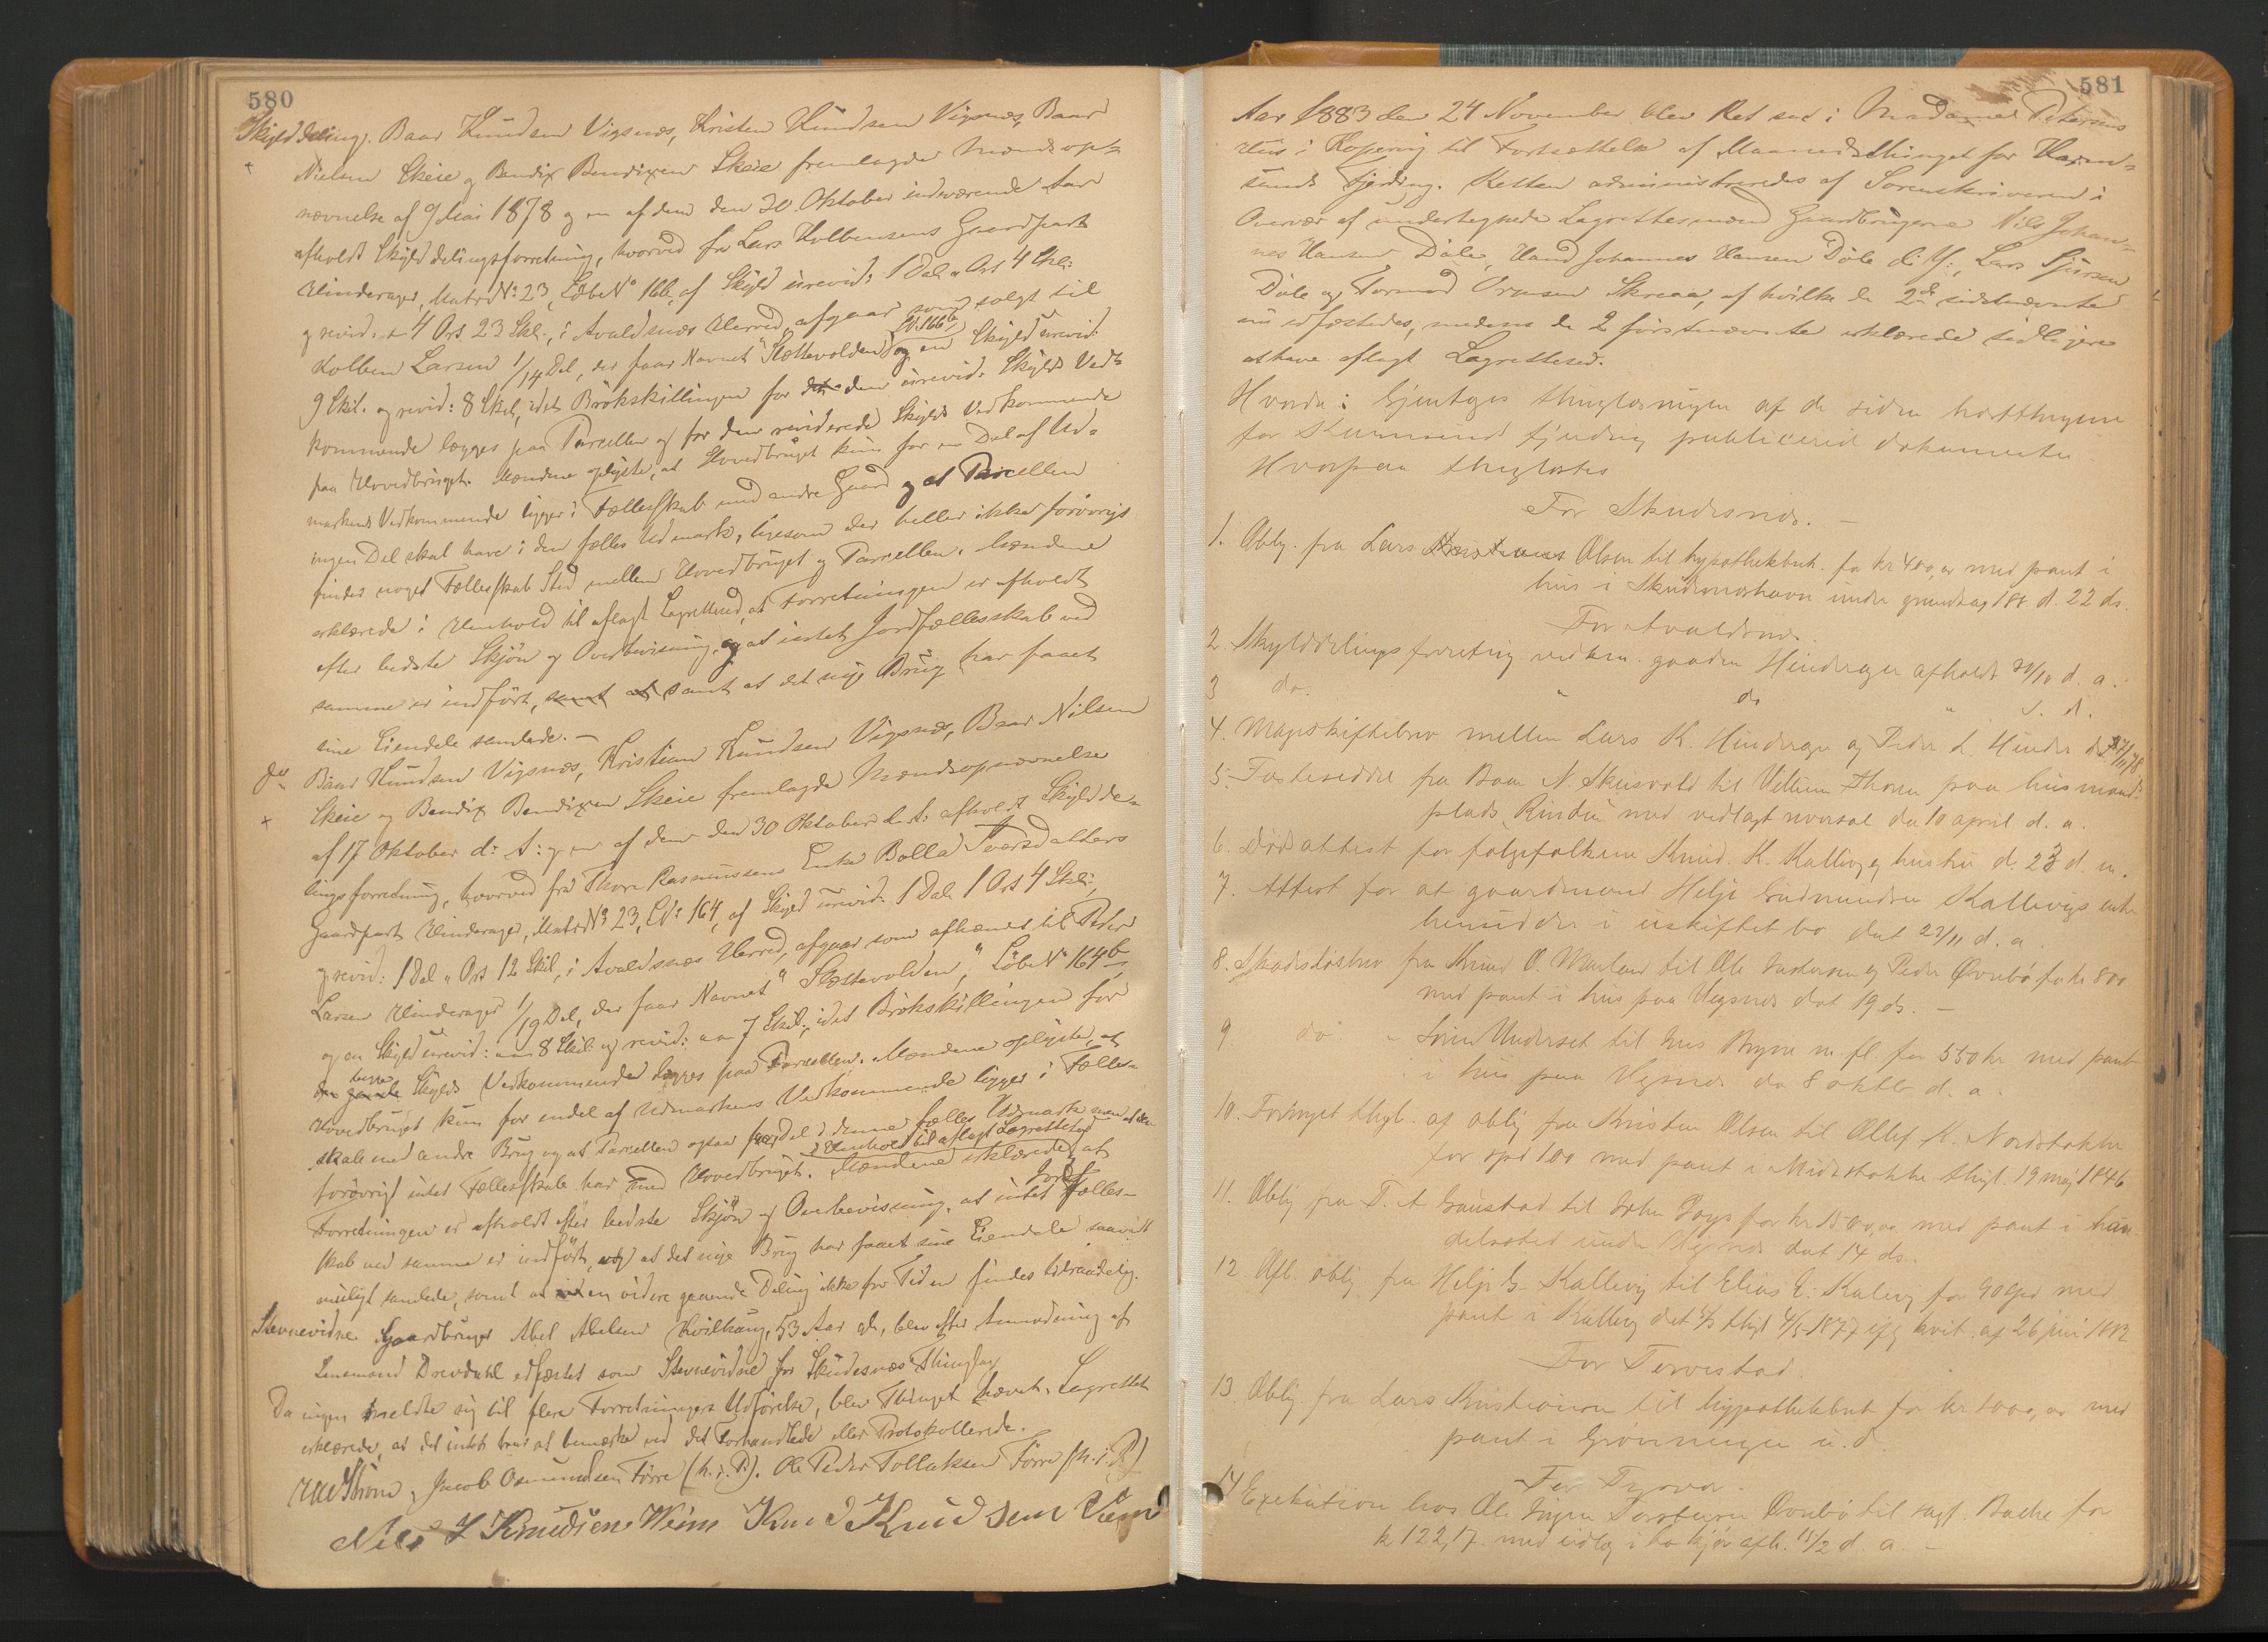 580
Skylddeling. Baar Knudsen Vigsnæs, Kristen Knudsen Vigsnæs, Baar
Nielsen Skeie og Bendix Bendixen Skeie fremlagde Mændsop-
nævnelse af 9 Mai 1878 og en af dem den 30 Oktober indeværende Aar
afholdt Skylddelingsforretning, hvorved fra Lars Kolbensens Gaardpart
Hinderager, Matr. No: 23, Løbe No 166, af Skyld urevid: 1 Dal. " Ort 4 Skil:
og revid: " 4 Ort 23 Skl., i Avaldsnæs Herred, afgaar som solgt til
Kolben Larsen 1/14 Del, der faar Navnet "Slettevolden" LN. 166b og en Skyld urevid:
9 Skil. og revid: 8 Skil, idet Brøkskillingen for den urevid: Skylds Ved-
kommende lægges paa Parcellen og for den reviderede Skylds Vedkommende
paa Hovedbruget. Mændene oplyste, at Hovedbruget kun for en Del af Ud-
markens Vedkommende ligger i Fællesskab med andre Gaard og at Parcellen
ingen Del skal have i den fælles Udmark, ligesom der heller ikke forøvrigt
findes noget Fællesskab Sted mellem Hovedbruget og Parcellen. Mændene
erklærede i Henhold til aflagt Lagretteed, at Forretningen er afholdt
efter bedste Skjøn og Overbevisning, og at intet Jordfællesskab ved
samme er indført, samt at samt at det nye Brug har faaet
sine Eiendele samlede. —
do Baar Knudsen Vigsnæs, Kristian Knudsen Vigsnæs, Baar Nilsen
Skeie og Bendix Bendixen Skeie fremlagde Mændsopnævnelse
af 17 Oktober d: A: og en af dem den 30 Oktober d. A: afholdt Skyldde-
lingsforretning, hvorved fra Thore Rasmussens Enke Bolla Iversdatters
Gaardpart Hinderager, Matr. No 23, LN: 164, af Skyld urevid: 1 Dal. 1 Ort 4 Skl:
og revid: 1 Dal " Ort 12 Skil, i Avaldsnæs Herred, afgaar som afhændet til Peder
Larsen Hinderager 1/19 Del, der faar Navnet "Slettevolden," Løbe No 164b
og en Skyld urevid: " " 8 Skil: og revid: " " 7 Skil:, idet Brøkskillingen for
begge Skylds Vedkommende lægges paa Parcellen. Mændene oplyste, at
Hovedbruget kun for endel af Udmarkens Vedkommende ligger i Fælles-
skab med andre Brug og at Parcellen ogsaa faar Del i denne fælles Udmark men at den
forøvrigt intet Fællesskab har med Hovedbruget. Mændene erklærede i Henhold til aflagt Lagretteed at
Forretningen er afholdt efter bedste Skjøn og Overbevisning, at intet Jordfælles-
skab ved samme er indført, og at det nye Brug har faaet sine Eiendele saavidt
muligt samlede, samt at en videre gaaende Deling ikke for Tiden findes tilraadelig.
Stevnevidne. Gaardbruger Abel Abelsen Kvilhaug, 53 Aar gl., blev efter Anmodning af
Lensmand Drevdahl edfæstet som Stevnevidne for Skudesnæs Thinglag
Da ingen meldte sig til flere Forretningers Udførelse, blev Thinget hævet. Lagrettet
erklærede, at det intet havde at bemærke ved det Forhandlede eller Protokollerede.
Jacob Osmundsen Førre (h. i. P.). Ole Peder Tollaksen Førre (h. i. P.)
Nils H Knudsen Knud Knudsen
581
Aar 1883 den 24 November blev Ret sat i Madame Petersens
Hus i Kopervig til Fortsættelse af Maanedsthinget for Karm-
sunds Fjerding. Retten administreredes af Sorenskriveren i
Overvær af undertegnede Lagrettesmænd Gaardbrugerne Nils Johan-
nes Hansen Dale, Johannes Hansen Dale d. Y:, Lars Sjursen
Dale og Tormod Ormsen Skreaa, af hvilke de 2de sidstnævnte
nu edfæstedes, medens de 2 førstnævnte erklærede tidligere
at have aflagt Lagretteed.
Hvorda: Gjentages thinglæsningen af de siden høstthingene
for Karmsund fjerding publicered dokumenter.
Hvorpaa thinglæstes
For Skudesnæs. —
1. Oblig. fra Lars Olsen til hypothekbnk. for kr 400,00 med pant i
hus i Skudesneshavn under grundtag 188 d. 22 ds.
For Avaldsnæs.
2. Skylddelingsforretning vedkm. gaarden Hinderager afholdt 30/10 d. a.
3 do. " do " s. d.
4. Mageskiftebrev mellem Lars K. Hinderager og Peder L. Hinder dat
5. Fæsteseddel fra Baar N. Skeisvold til Villum Thorsen paa husmands-
plads Rindin med vedlagt reversal da 10 april d. a.
6. Dødsattest for følgefolkene Knud K. Kallevig og hustru d. 23 d. m.
7. Attest for at gaardmand Helje Gudmundsen Kallevigs enke
hensidder i uskiftet bo dat 23/11 d. a.
8. Skadesløsbrev fra Knud O. Munland til Ole og Peder Øvrebø for kr 800
med pant i hus paa Vigsnæs dat 19 ds. —
9. do " til Bryne m. fl. for 550 kr. med pant
i hus paa Vigsnæs da 8 oktbr d. a.
10. Fornyet thgl. af oblig fra Kristen Olsen til Ollef K. Nordstokke
for spd 100 med pant i Midtstokke thgl. 19 maj 1846
11. Oblig fra T. A Gaustad til John for kr 1500,00 med pant i han-
delssted under Vigsnæs dat 14 ds.
12. Afl. oblig fra Helje G. Kallevig til Elias E. Kalevig for 90 spd med
pant i Kallevig thgl 1877 ifg kvit. af 26 juni 1882
For Torvestad.
13 Oblig. fra Lars Kristiansen til hypothekbnk for kr 1000,00 med
pant i Grønningen u. d.
For Tysvær.
14 Exekution hos Ole Torstensen Øvrebø til sagf. Bache for
kr 122,17 med udlæg i ko kjør afh. 15/2 d. a. —